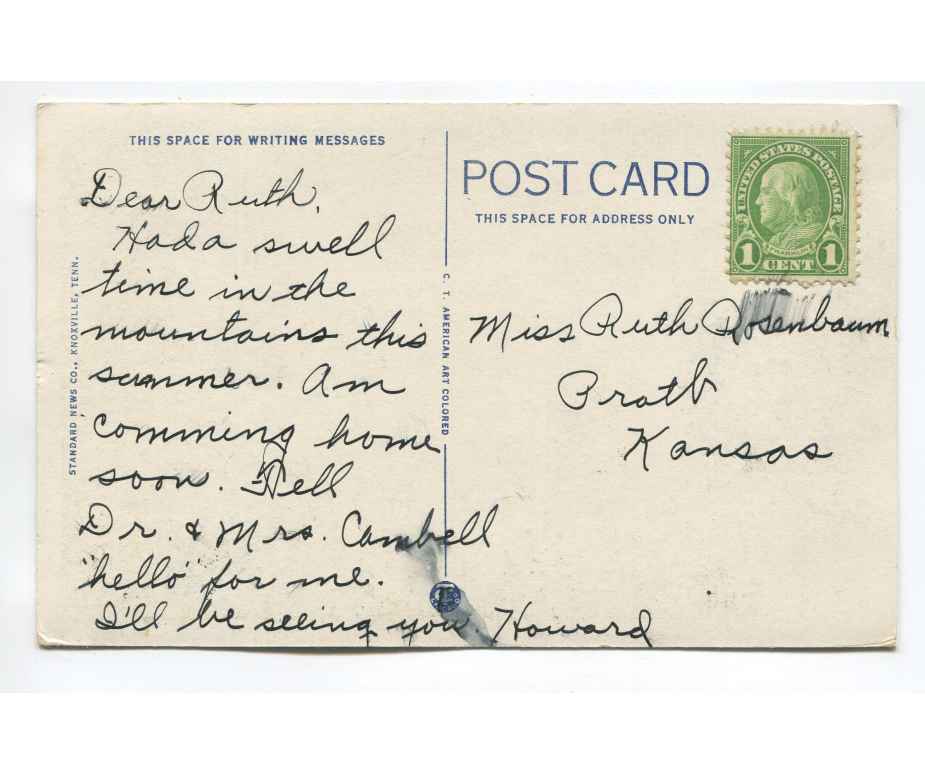 THIS SPACE FOR WRITING MESSAGES
Dear Ruth,
Had a swell
time in the
mountains this
summer. Am
comming home
soon. Tell
Dr. & Mrs. Cambell
"hello" for me.
I'll be seeing you. Howard
STANDARD NEWS CO., KNOXVILLE, TENN.
C. T. AMERICAN ART COLORED
POST CARD
THIS SPACE FOR ADDRESS ONLY
UNITED STATES POSTAGE
FRANKLIN
1 CENT 1
Miss Ruth Rosenbaum
Pratt
Kansas